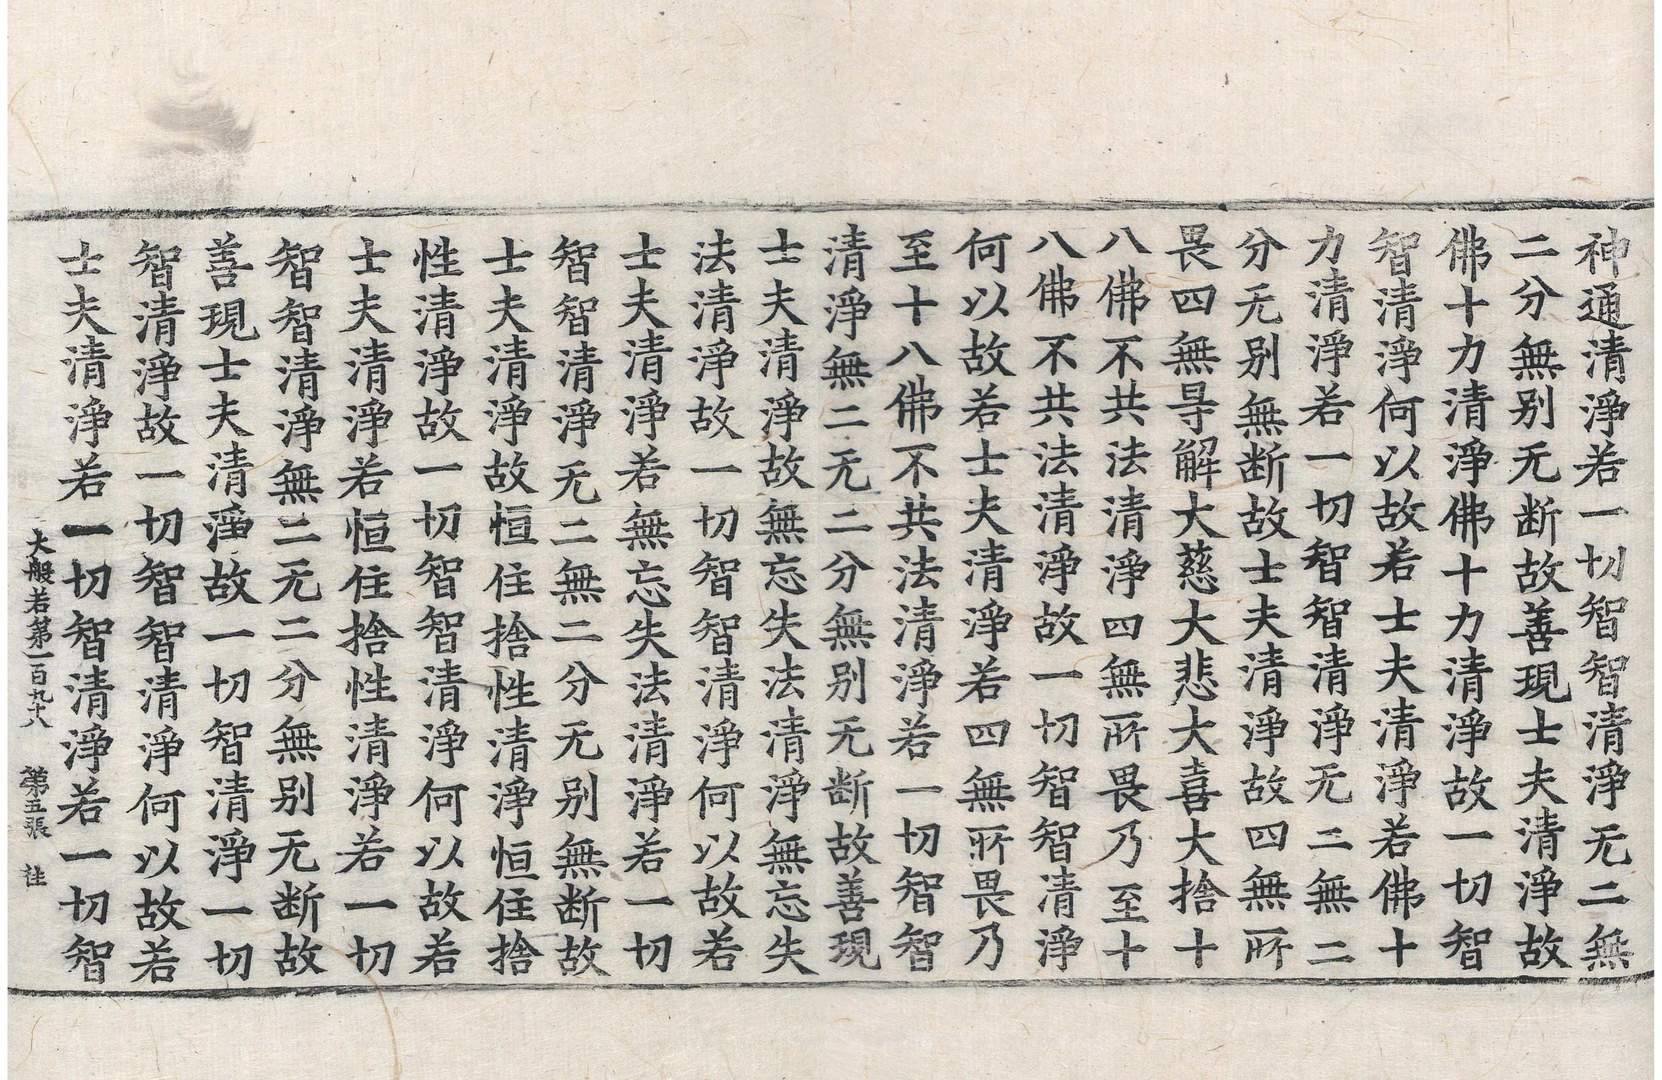 神通清淨若一切智智清淨无二無
二分無别无断故善現士夫清淨故
佛十力清淨佛十力清淨故一切智
智清淨何以故若士夫清淨若佛十
力清淨若一切智智清淨无二無二
分无别無断故士夫清淨故四無所
畏四無㝵解大慈大悲大喜大捨十
八佛不共法清淨四無所畏乃至十
八佛不共法清淨故一切智智清淨
何以故若士夫清淨若四無所畏乃
至十八佛不共法清淨若一切智智
清淨無二无二分無别无断故善現
士夫清淨故無忘失法清淨無忘失
法清淨故一切智智清淨何以故若
士夫清淨若無忘失法清淨若一切
智智清淨无二無二分无别無断故
士夫清淨故恒住捨性清淨恒住捨
性清淨故一切智智清淨何以故若
士夫清淨若恒住捨性清淨若一切
智智清淨無二无二分無别无断故
善現士夫清淨故一切智清淨一切
智清淨故一切智智清淨何以故若
士夫清淨若一切智清淨若一切智
大般若第一百九十八 第五張